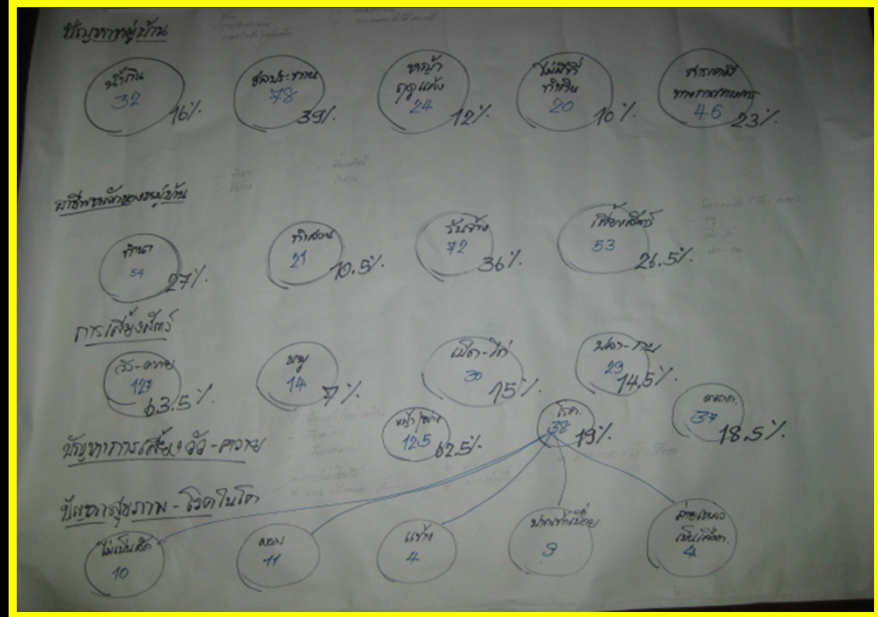 ปัญหาหมู่บ้าน
น้ำกิน
32
16%
ชลประทาน
78
39%
หญ้า
ฤดูแล้ง
24
12%
ไม่มีที่
ทำกิน
20
10%
สารเคมี
ทางการเกษตร
46
23%
อาชีพหลักของหมู่บ้าน
ทำนา
54
27%
ทำสวน
21
10.5%
รับจ้าง
72
36%
เลี้ยงสัตว์
53
26.5%
การเลี้ยงสัตว์
วัว-ควาย
127
63.5%
หมู
14
7%
เป็ด-ไก่
30
15%
ปลา-กบ
29
14.5%
ปัญหาการเลี้ยงวัว-ควาย
125
62.5%
โรค
38
19%
ตลาด
37
18.5%
ปัญหาสุขภาพ-โรคในโค
ไม่เป็นสัด
10
ผอม
11
แท้ง
4
ปากเท้าเปื่อย
9
ถ่ายเหลว
เป็นเลือด
4